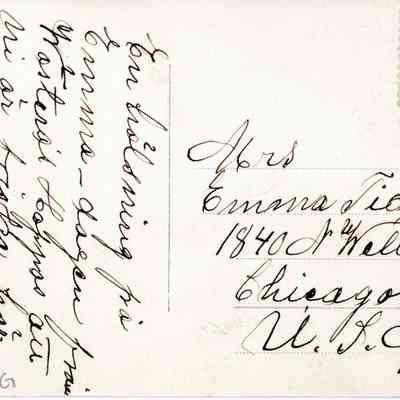 En hälsning på
Emma-dagen från
Wästerås Hoppas att
ni är friska
Mrs
Emma Tid
1840 N Wel
Chicago
U. S.
G